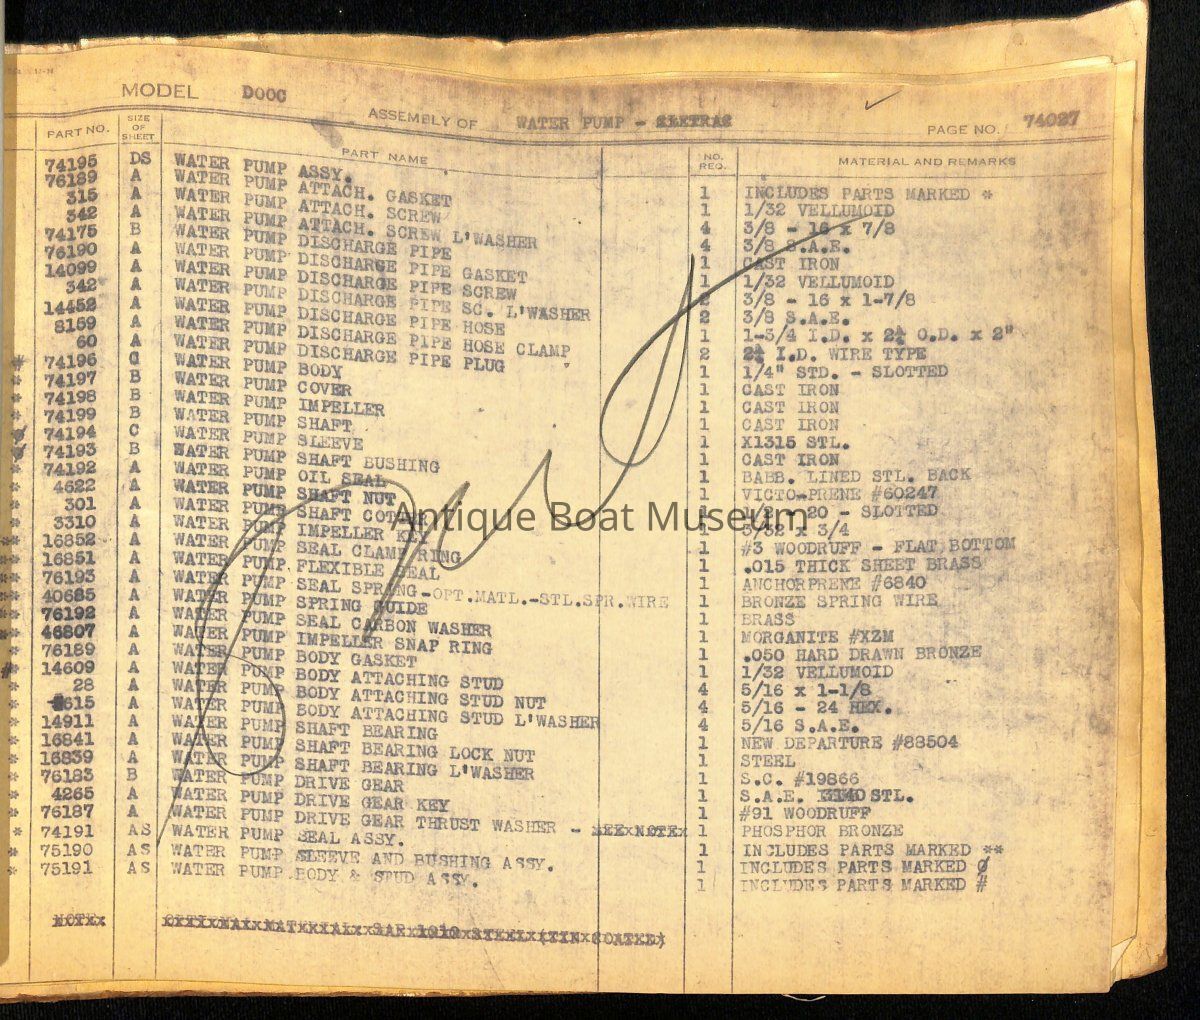 MODEL D00C
ASSEMBLY OF WATER PUMP - PAGE NO. 74027
PART NO. SIZE OF SHEET PART NAME NO. REQ. MATERIAL AND REMARKS
74195 DS WATER PUMP ASSY. 1 INCLUDES PARTS MARKED *
76189 A WATER PUMP ATTACH. GASKET 1 1/32 VELLUMOID
315 A WATER PUMP ATTACH. SCREW 4 3/8 - 16 x 7/8
342 A WATER PUMP ATTACH. SCREW L'WASHER 4 3/8 S.A.E.
74175 B WATER PUMP DISCHARGE PIPE 1 CAST IRON
76190 A WATER PUMP DISCHARGE PIPE GASKET 1 1/32 VELLUMOID
14099 A WATER PUMP DISCHARGE PIPE SCREW 2 3/8 - 16 x 1-7/8
342 A WATER PUMP DISCHARGE PIPE SC. L'WASHER 2 3/8 S.A.E.
14452 A WATER PUMP DISCHARGE PIPE HOSE 1 1-3/4 I.D. x 2¼ O.D. x 2"
8159 A WATER PUMP DISCHARGE PIPE HOSE CLAMP 2 2¼ I.D. WIRE TYPE
60 A WATER PUMP DISCHARGE PIPE PLUG 1 1/4" STD. - SLOTTED
# 74196 C WATER PUMP BODY 1 CAST IRON
* 74197 B WATER PUMP COVER 1 CAST IRON
* 74198 B WATER PUMP IMPELLER 1 CAST IRON
* 74199 B WATER PUMP SHAFT 1 X1315 STL.
Ø 74194 C WATER PUMP SLEEVE 1 CAST IRON
Ø 74193 B WATER PUMP SHAFT BUSHING 1 BABB. LINED STL. BACK
* 74192 A WATER PUMP OIL SEAL 1 VICTO-PRENE #60247
* 4622 A WATER PUMP SHAFT NUT 1 1/2 - 20 - SLOTTED
* 301 A WATER PUMP SHAFT COTTER 1 3/32 x 3/4
* 3310 A WATER PUMP IMPELLER KEY 1 #3 WOODRUFF - FLAT BOTTOM
** 16852 A WATER PUMP SEAL CLAMP RING 1 .015 THICK SHEET BRASS
** 16851 A WATER PUMP FLEXIBLE SEAL 1 ANCHORPRENE #6840
** 76193 A WATER PUMP SEAL SPRING-OPT.MATL.-STL.SPR.WIRE 1 BRONZE SPRING WIRE
** 40685 A WATER PUMP SPRING GUIDE 1 BRASS
** 76192 A WATER PUMP SEAL CARBON WASHER 1 MORGANITE #XZM
** 46807 A WATER PUMP IMPELLER SNAP RING 1 .050 HARD DRAWN BRONZE
* 76189 A WATER PUMP BODY GASKET 1 1/32 VELLUMOID
# 14609 A WATER PUMP BODY ATTACHING STUD 4 5/16 x 1-1/8
* 28 A WATER PUMP BODY ATTACHING STUD NUT 4 5/16 - 24 HEX.
* 615 A WATER PUMP BODY ATTACHING STUD L'WASHER 4 5/16 S.A.E.
* 14911 A WATER PUMP SHAFT BEARING 1 NEW DEPARTURE #88504
* 16841 A WATER PUMP SHAFT BEARING LOCK NUT 1 STEEL
* 16839 A WATER PUMP SHAFT BEARING L'WASHER 1 S.C. #19866
* 76183 B WATER PUMP DRIVE GEAR 1 S.A.E. 3140 STL.
* 4265 A WATER PUMP DRIVE GEAR KEY 1 #91 WOODRUFF
* 76187 A WATER PUMP DRIVE GEAR THRUST WASHER - 1 PHOSPHOR BRONZE
* 74191 AS WATER PUMP SEAL ASSY. 1 INCLUDES PARTS MARKED **
* 75190 AS WATER PUMP SLEEVE AND BUSHING ASSY. 1 INCLUDES PARTS MARKED Ø
* 75191 AS WATER PUMP BODY & STUD ASSY. 1 INCLUDES PARTS MARKED #
Antique Boat Museum